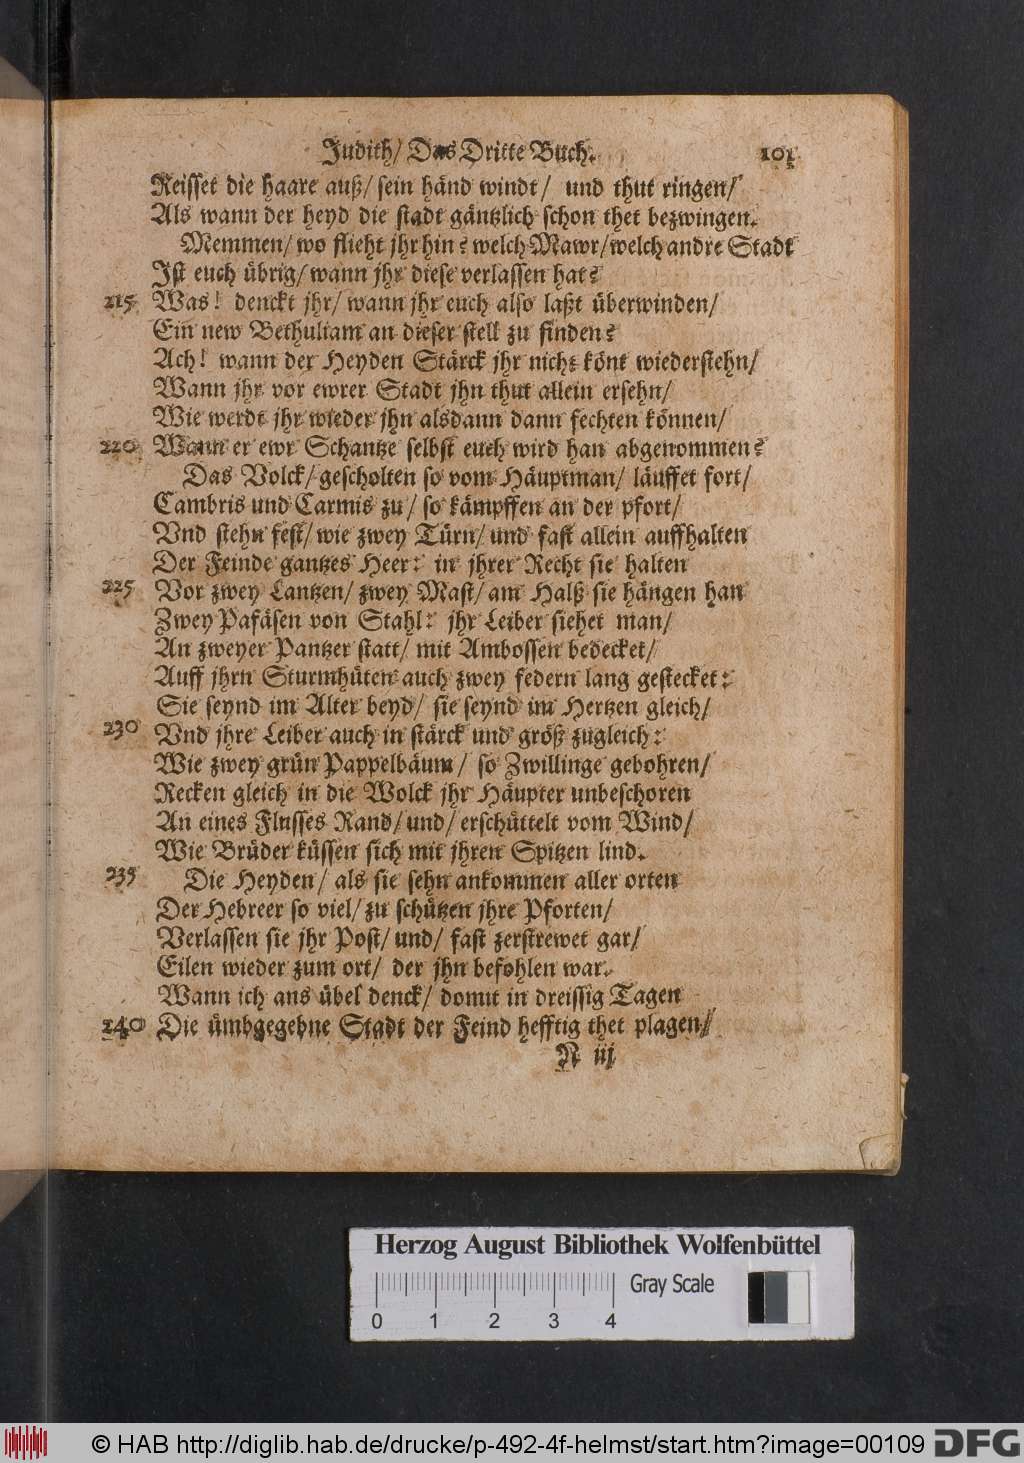 Judith/ Das Dritte Buch. 101
Reisset die haare auß/ sein händ windt/ und thut ringen/
Als wann der heyd die stadt gäntzlich schon thet bezwingen.
Memmen/ wo flieht jhr hin? welch Mawr/ welch andre Stadt
Ist euch übrig/ wann jhr diese verlassen hat?
215 Was! denckt jhr/ wann jhr euch also laßt überwinden/
Ein new Bethuliam an dieser stell zu finden?
Ach! wann der Heyden Stärck jhr nicht könt wiederstehn/
Wann jhr vor ewrer Stadt jhn thut allein ersehn/
Wie werdt jhr wieder jhn alsdann dann fechten können/
220 Wann er ewr Schantze selbst euch wird han abgenommen?
Das Volck/ gescholten so vom Häuptman/ läuffet fort/
Cambris und Carmis zu/ so kämpffen an der pfort/
Vnd stehn fest/ wie zwey Türn/ und fast allein auffhalten
Der Feinde gantzes Heer: in jhrer Recht sie halten
225 Vor zwey Lantzen/ zwey Mast/ am Halß sie hängen han
Zwey Pafäsen von Stahl: jhr Leiber siehet man/
An zweyer Pantzer statt/ mit Ambossen bedecket/
Auff jhrn Sturmhüten auch zwey federn lang gestecket:
Sie seynd im Alter beyd/ sie seynd im Hertzen gleich/
230 Vnd jhre Leiber auch in stärck und größ zugleich:
Wie zwey grün Pappelbäum/ so Zwillinge gebohren/
Recken gleich in die Wolck jhr Häupter unbeschoren
An eines Flusses Rand/ und/ erschüttelt vom Wind/
Wie Brüder küssen sich mit jhren Spitzen lind.
235 Die Heyden/ als sie sehn ankommen aller orten
Der Hebreer so viel/ zu schützen jhre Pforten/
Verlassen sie jhr Post/ und/ fast zerstrewet gar/
Eilen wieder zum ort/ der jhn befohlen war.
Wann ich ans übel denck/ domit in dreissig Tagen
240 Die ümbgegebne Stadt der Feind hefftig thet plagen/
N iij
Herzog August Bibliothek Wolfenbüttel
Gray Scale
0 1 2 3 4
© HAB http://diglib.hab.de/drucke/p-492-4f-helmst/start.htm?image=00109 DFG